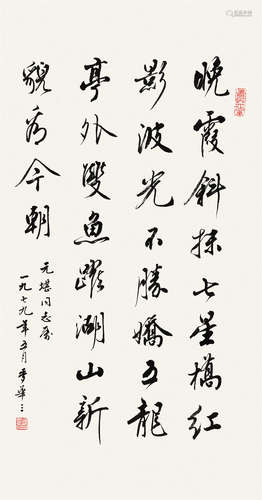 晚霞斜抹七星橋紅
影波光不勝嬌五龍
亭外雙魚躍湖山新
貌看今朝
元堪同志屬
一九七九年五月